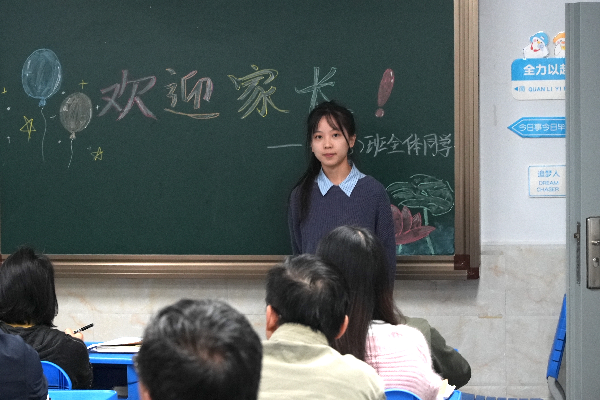 欢迎家长!
班全体同学
全力以
QUAN LI YI
今日事今日毕
追梦人
DREAM
CHASER